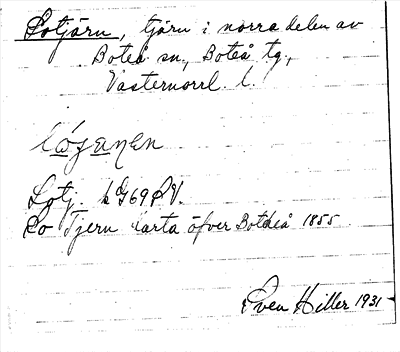 Lotjärn, tjärn i norra delen av
Boteå sn, Boteå tg,
Västernorrl. l.
Lotj. k G69 SV.
Lo Tjern karta öfver Boteå 1855
Sven Hiller 1931